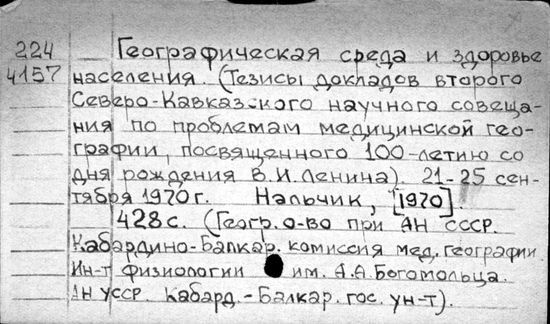 224 Географическая среда и здоровье
4157 населения. (Тезисы докладов второго
Северо-Кавказского научного совеща-
ния по проблемам медицинской гео-
графии, посвященного 100-летию со
дня рождения В.И.Ленина). 21-25 сен-
тября 1970 г. Нальчик, [1970].
428 с. (Геогр. о-во при АН СССР.
Кабардино-Балкар. комиссия мед. географии
Ин-т физиологии им. А.А.Богомольца.
АН УССР. Кабард.-Балкар. гос. ун-т).